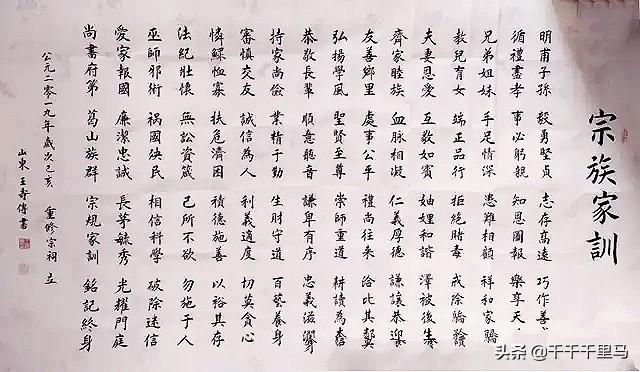 宗族家訓
明甫子孫 毅勇堅貞 志存高遠 巧作善
循禮盡孝 事必躬親 知恩圖報 樂享天
兄弟姐妹 手足情深 患難相顧 祥和家
教兒育女 端正品行 拒絕賭毒 戒除
夫妻恩愛 互敬如賓 妯娌和諧 澤被後
齊家睦族 血脉相凝 仁義厚德 謙讓恭
友善鄉里 處事公平 禮尚往來 洽比其
弘揚學風 聖賢至尊 崇師重道 耕讀為
恭敬長輩 順意聽音 謙卑有序 忠義滋
持家尚儉 業精于勤 生財守道 百藝養身
審慎交友 誠信為人 利義適度 切莫貪心
憐鰥恤寡 扶危濟困 積德施善 以裕其存
法紀壯懷 無訟資箴 己所不欲 勿施于人
巫師邪術 禍國殃民 相信科學 破除迷信
愛家報國 廉潔忠誠 長茅毓秀 光耀門庭
尚書府第 葛山族群 宗規家訓 銘記終身
公元二零一九年歲次己亥 重修宗祠立
山東王壽傳書
头条 @千千千里马